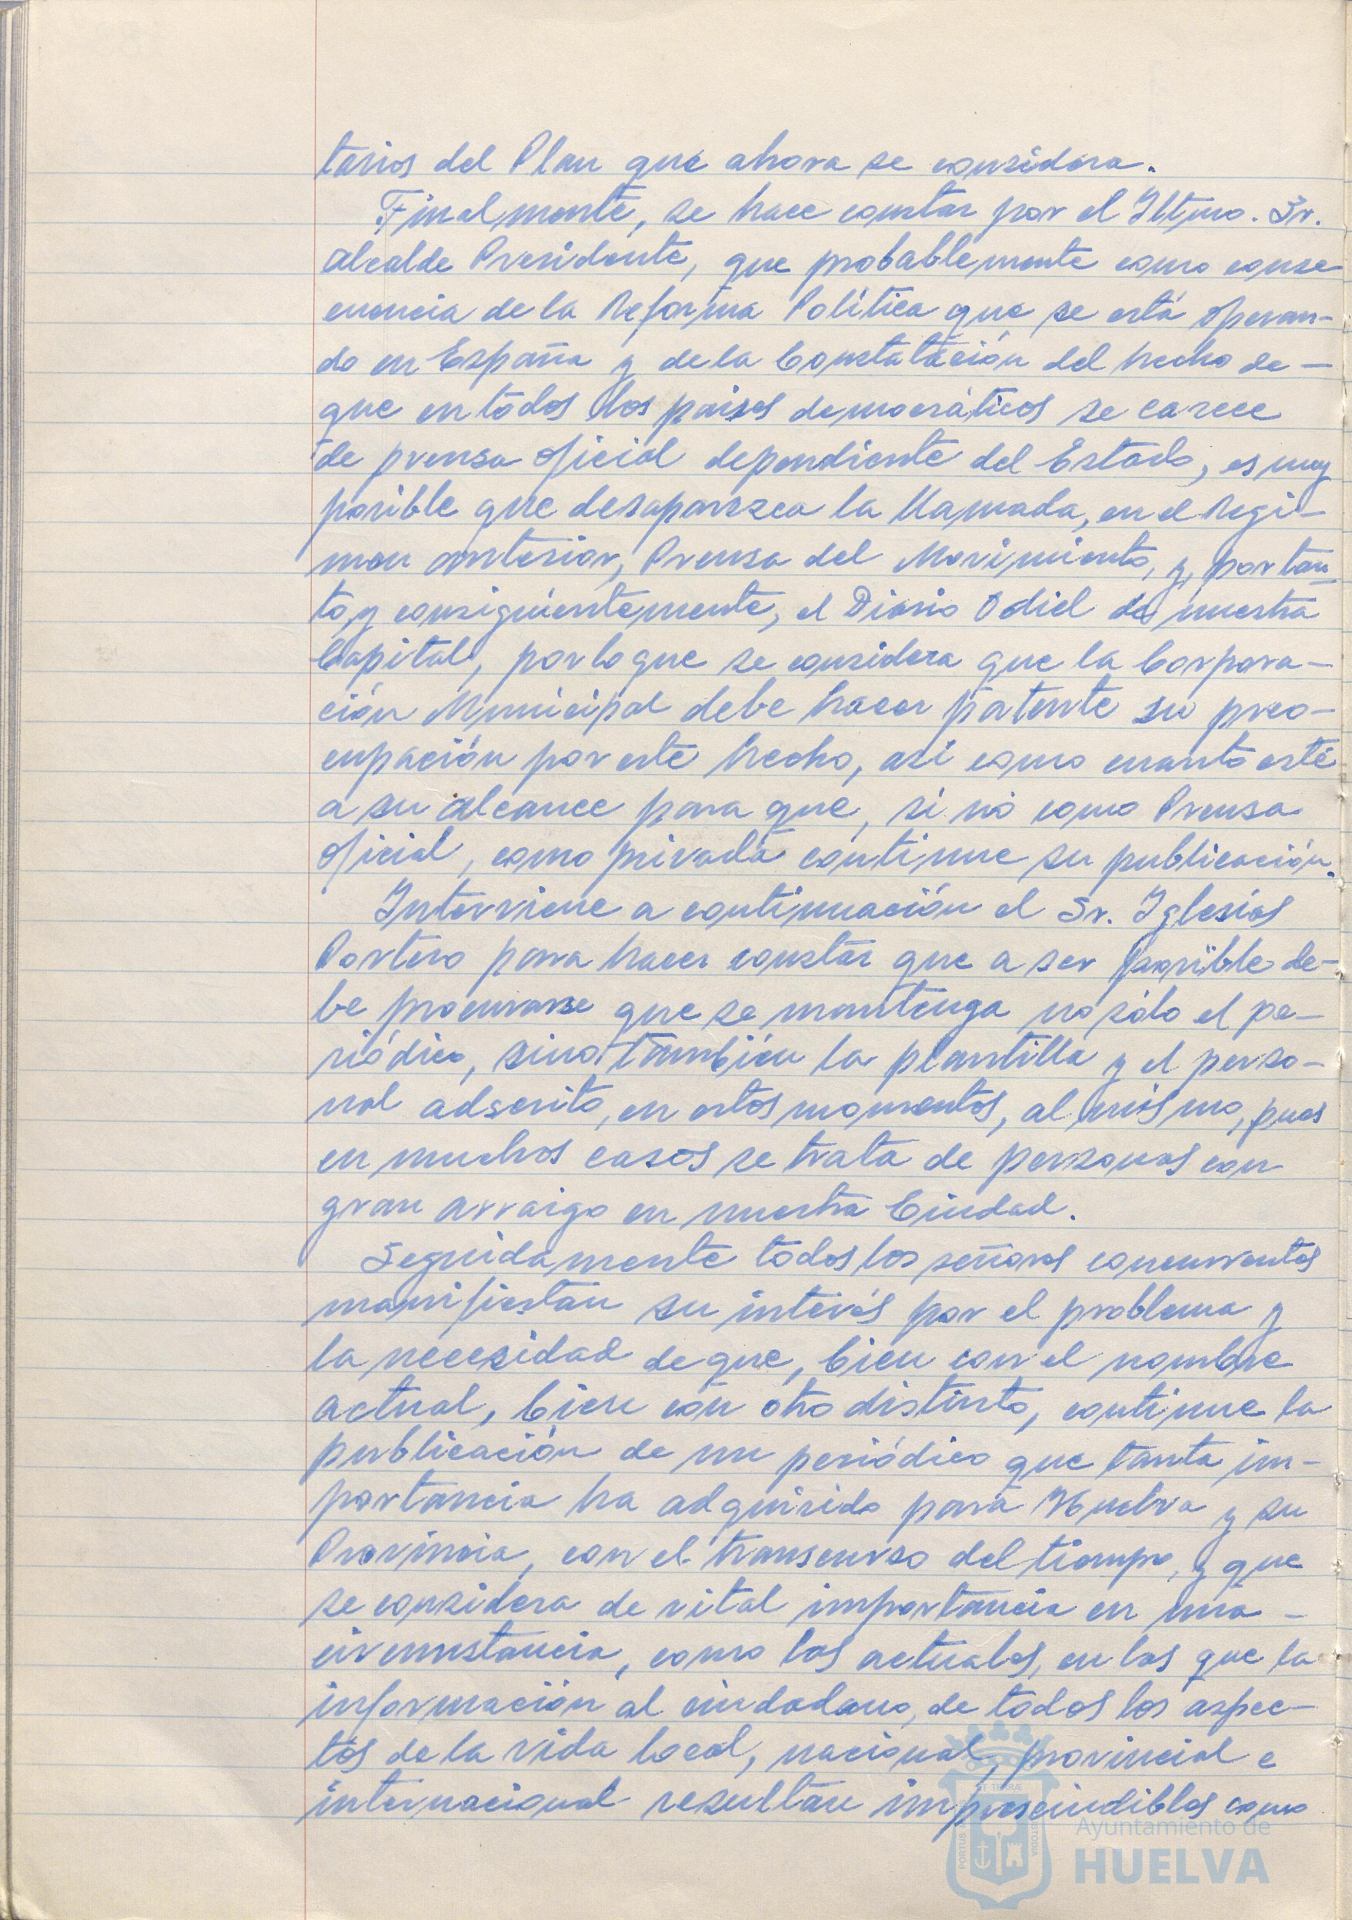 terios del Plan que ahora se considera.
Finalmente, se hace constar por el Iltmo. Sr.
Alcalde Presidente, que probablemente como conse
cuencia de la Reforma Política que se está operan-
do en España y de la Constatación del hecho de-
que en todos los paises democráticos se carece
de prensa oficial dependiente del Estado, es muy
posible que desaparezca la llamada, en el Regi-
men anterior, Prensa del Movimiento, y, por tan-
to, y consiguientemente, el Diario Odiel de nuestra
Capital, por lo que se considera que la Corpora-
ción Municipal debe hacer patente su preo-
cupación por este hecho, asi como cuanto esté
a su alcance para que, si nó como Prensa
oficial, como privada continue su publicación.
Interviene a continuación el Sr. Iglesias
Portero para hacer constar que a ser posible de-
be procurarse que se mantenga no sólo el pe-
riódico, sino también la plantilla y el perso-
nal adscrito, en estos momentos, al mismo, pues
en muchos casos se trata de personas con
gran arraigo en nuestra Ciudad.
Seguidamente todos los señores concurrentes
manifiestan su interés por el problema y
la necesidad de que, bien con el nombre
actual, bien con otro distinto, continue la
publicación de un periódico que tanta im-
portancia ha adquirido para Huelva y su
Provincia, con el transcurso del tiempo, y que
se considera de vital importancia en una -
circunstancia, como las actuales, en las que la
información al ciudadano, de todos los aspec-
tos de la vida local, nacional, provincial e
internacional resultan imprescindibles como
PORTUS
TERRAE
CUSTODIA
Ayuntamiento de
HUELVA